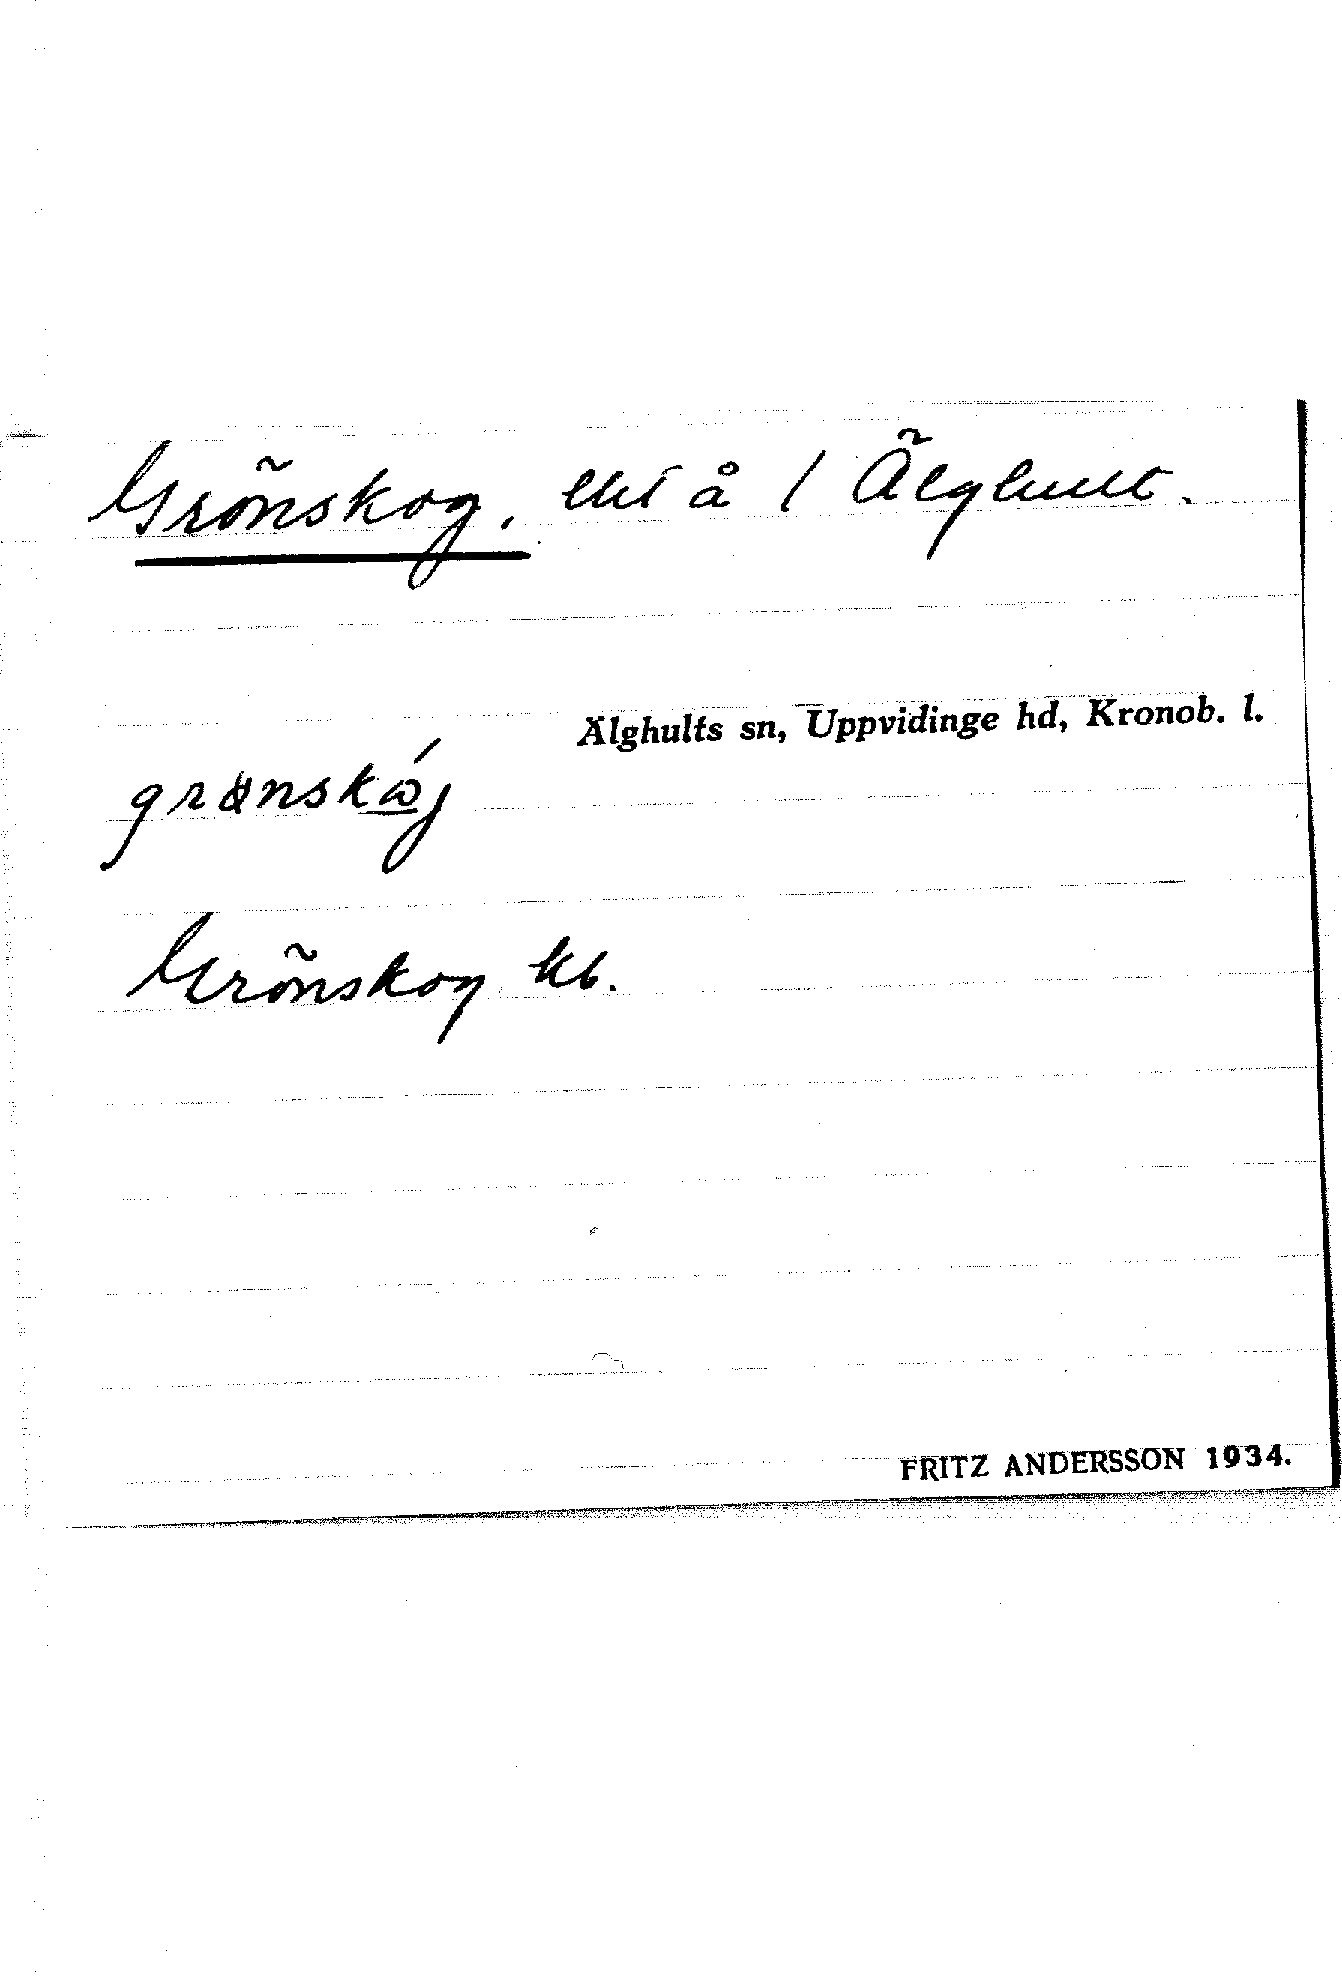 Grönskog. lht å 1 Älghult.
Älghults sn, Uppvidinge hd, Kronob. l.
Grönskog kb.
FRITZ ANDERSSON 1934.